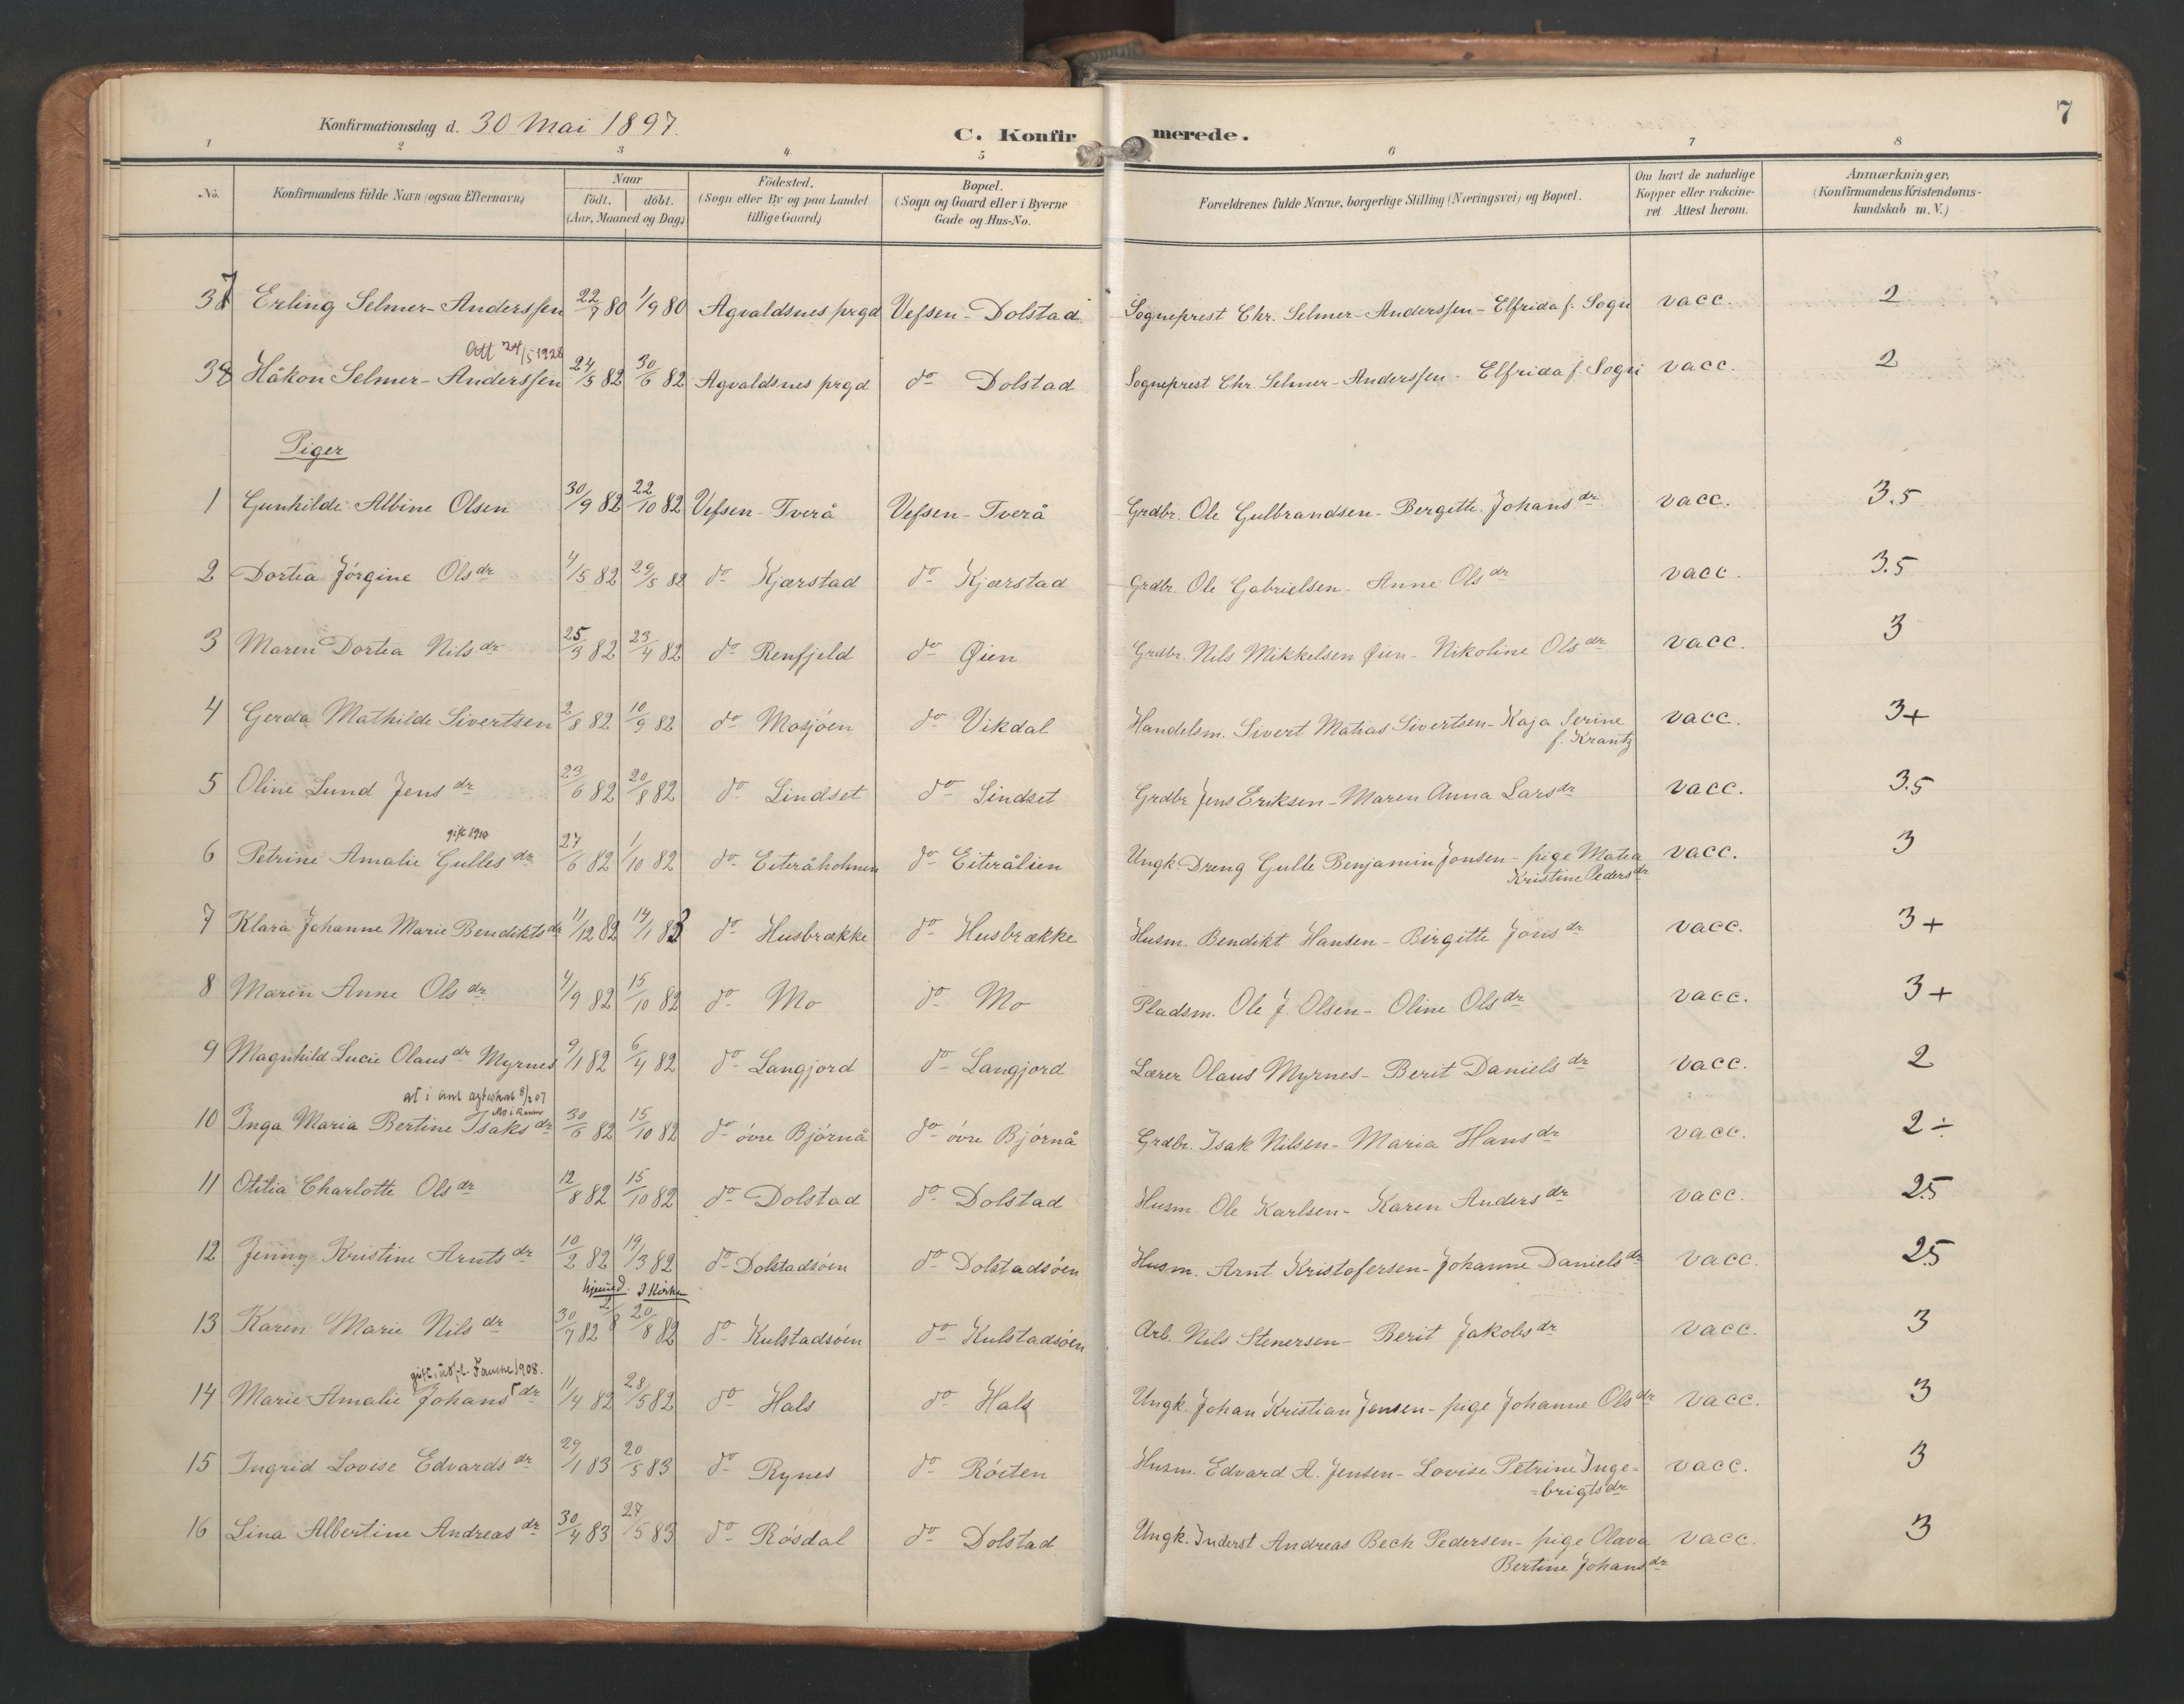 7
Konfirmationsdag d. 30 Mai 1897.
C. Konfirmerede.
1 2 3 4 5 6 7 8
No. Konfirmandens fulde Navn (ogsaa Efternavn) Naar født. døbt. (Aar, Maaned og Dag) Fødested. (Sogn eller By og paa Landet tillige Gaard) Bopæl. (Sogn og Gaard eller i Byerne Gade og Hus-No. Forældrenes fulde Navne, borgerlige Stilling (Næringsvei) og Bopæl. Om havt de naturlige Kopper eller vakcineret. Attest herom. Anmærkninger, (Konfirmandens Kristendomskundskab m. V.)
37 Erling Selmer-Anderssen 22/7 80 1/9 80 Agvaldsnes prgd Vefsen - Dolstad Sogneprest Chr. Selmer-Anderssen - Elfrida f. Sogn vacc. 2
Att 24/5 1928
38 Håkon Selmer-Anderssen 24/5 82 30/6 82 Agvaldsnes prgd do Dolstad Sogneprest Chr. Selmer-Anderssen - Elfrida f. Sogn vacc. 2
Piger
1 Gunhilde Albine Olsen 30/9 82 22/10 82 Vefsen - Tverå Vefsen - Tverå Grdbr. Ole Gulbrandsen - Bergitte Johansdr vacc. 3.5
2 Dortea Jörgine Olsdr 4/5 82 29/5 82 do Kjærstad do Kjærstad Grdbr. Ole Gabrielsen - Anne Olsdr vacc. 3.5
3 Maren Dortea Nilsdr 25/3 82 23/4 82 do Renfjeld do Øien Grdbr. Nils Mikkelsen Øien - Nikoline Olsdr vacc. 3
4 Gerda Mathilde Sivertsen 2/8 82 10/9 82 do Mosjöen do Vikdal Handelsm. Sivert Matias Sivertsen - Kaja Serine f. Krantz vacc. 3+
5 Oline Lund Jensdr 23/6 82 20/8 82 do Lindset do Lindset Grdbr Jens Eriksen - Maren Anna Larsdr vacc. 3.5
gift 1910
6 Petrine Amalie Gullesdr 27/6 82 1/10 82 do Eiteråholmen do Eiterålien Ungk. Dreng Gulle Benjamin Jonsen - pige Matea Kristine Pedersdr vacc. 3
7 Klara Johanne Marie Bendiktsdr 11/12 82 14/1 83 do Husbrække do Husbrække Husm. Bendikt Hansen - Birgitte Jonsdr vacc. 3+
8 Maren Anne Olsdr 4/9 82 15/10 82 do Mo do Mo Pladsm. Ole J. Olsen - Oline Olsdr vacc. 3+
9 Magnhild Lucie Olausdr Myrnes 9/1 82 6/4 82 do Langjord do Langjord Lærer Olaus Myrnes - Berit Danielsdr vacc. 2
at i anl 8/2 07
Mo i Ranen
10 Inga Maria Bertine Isaksdr 30/6 82 15/10 82 do övre Björnå do övre Björnå Grdbr. Isak Nilsen - Maria Hansdr vacc. 2÷
11 Otilia Charlotte Olsdr 12/8 82 15/10 82 do Dolstad do Dolstad Husm. Ole Karlsen - Karen Andersdr vacc. 2.5
12 Jenny Kristine Arntsdr 10/2 82 19/3 82 do Dolstadsöen do Dolstadsöen Husm. Arnt Kristofersen - Johanne Danielsdr vacc. 2.5
hjemmed. I Kirken
13 Karen Marie Nilsdr 30/7 82 2/8 20/8 82 do Kulstadsöen do Kulstadsöen Arb. Nils Stenersen - Berit Jakobsdr vacc. 3
gift, Fauske 1908.
14 Marie Amalie Johansdr 11/4 82 28/5 82 do Hals do Hals Ungk. Johan Kristian Jensen - pige Johanne Olsdr vacc. 3
15 Ingrid Lovise Edvardsdr 29/1 83 20/5 83 do Rynes do Röiten Husm. Edvard A. Jensen - Lovise Petrine Inge=
=brigtsdr vacc. 3
16 Lina Albertine Andreasdr 30/4 83 27/5 83 do Rösdal do Dolstad Ungk. Inderst Andreas Bech Pedersen - pige Olava Bertine Johansdr vacc. 3